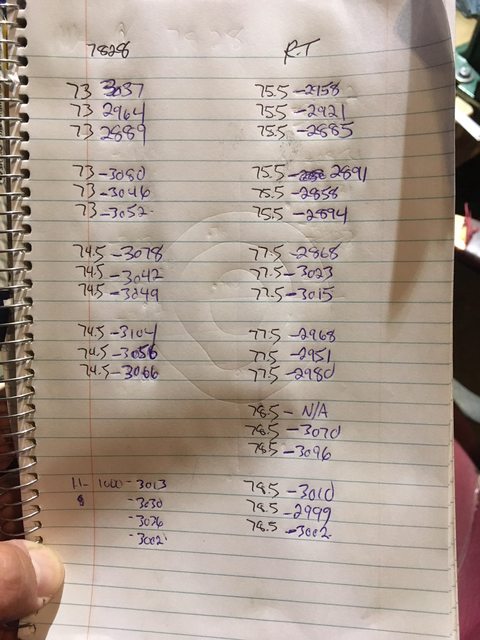 7828
73 3037
73 2964
73 2889
73-3080
73-3046
73-3052
74.5-3078
74.5-3042
74.5-3049
74.5-3104
74.5-3056
74.5-3066
11- 1000 - 3013
8 -3030
-3076
-3002
R.T
75.5-2958
75.5-2921
75.5-2885
75.5- 2891
75.5-2858
75.5-2894
77.5-2868
77.5-3023
77.5-3015
77.5-2968
77.5-2951
77.5-2980
78.5- N/A
78.5-3070
78.5-3096
78.5-3010
78.5-2999
78.5-3002